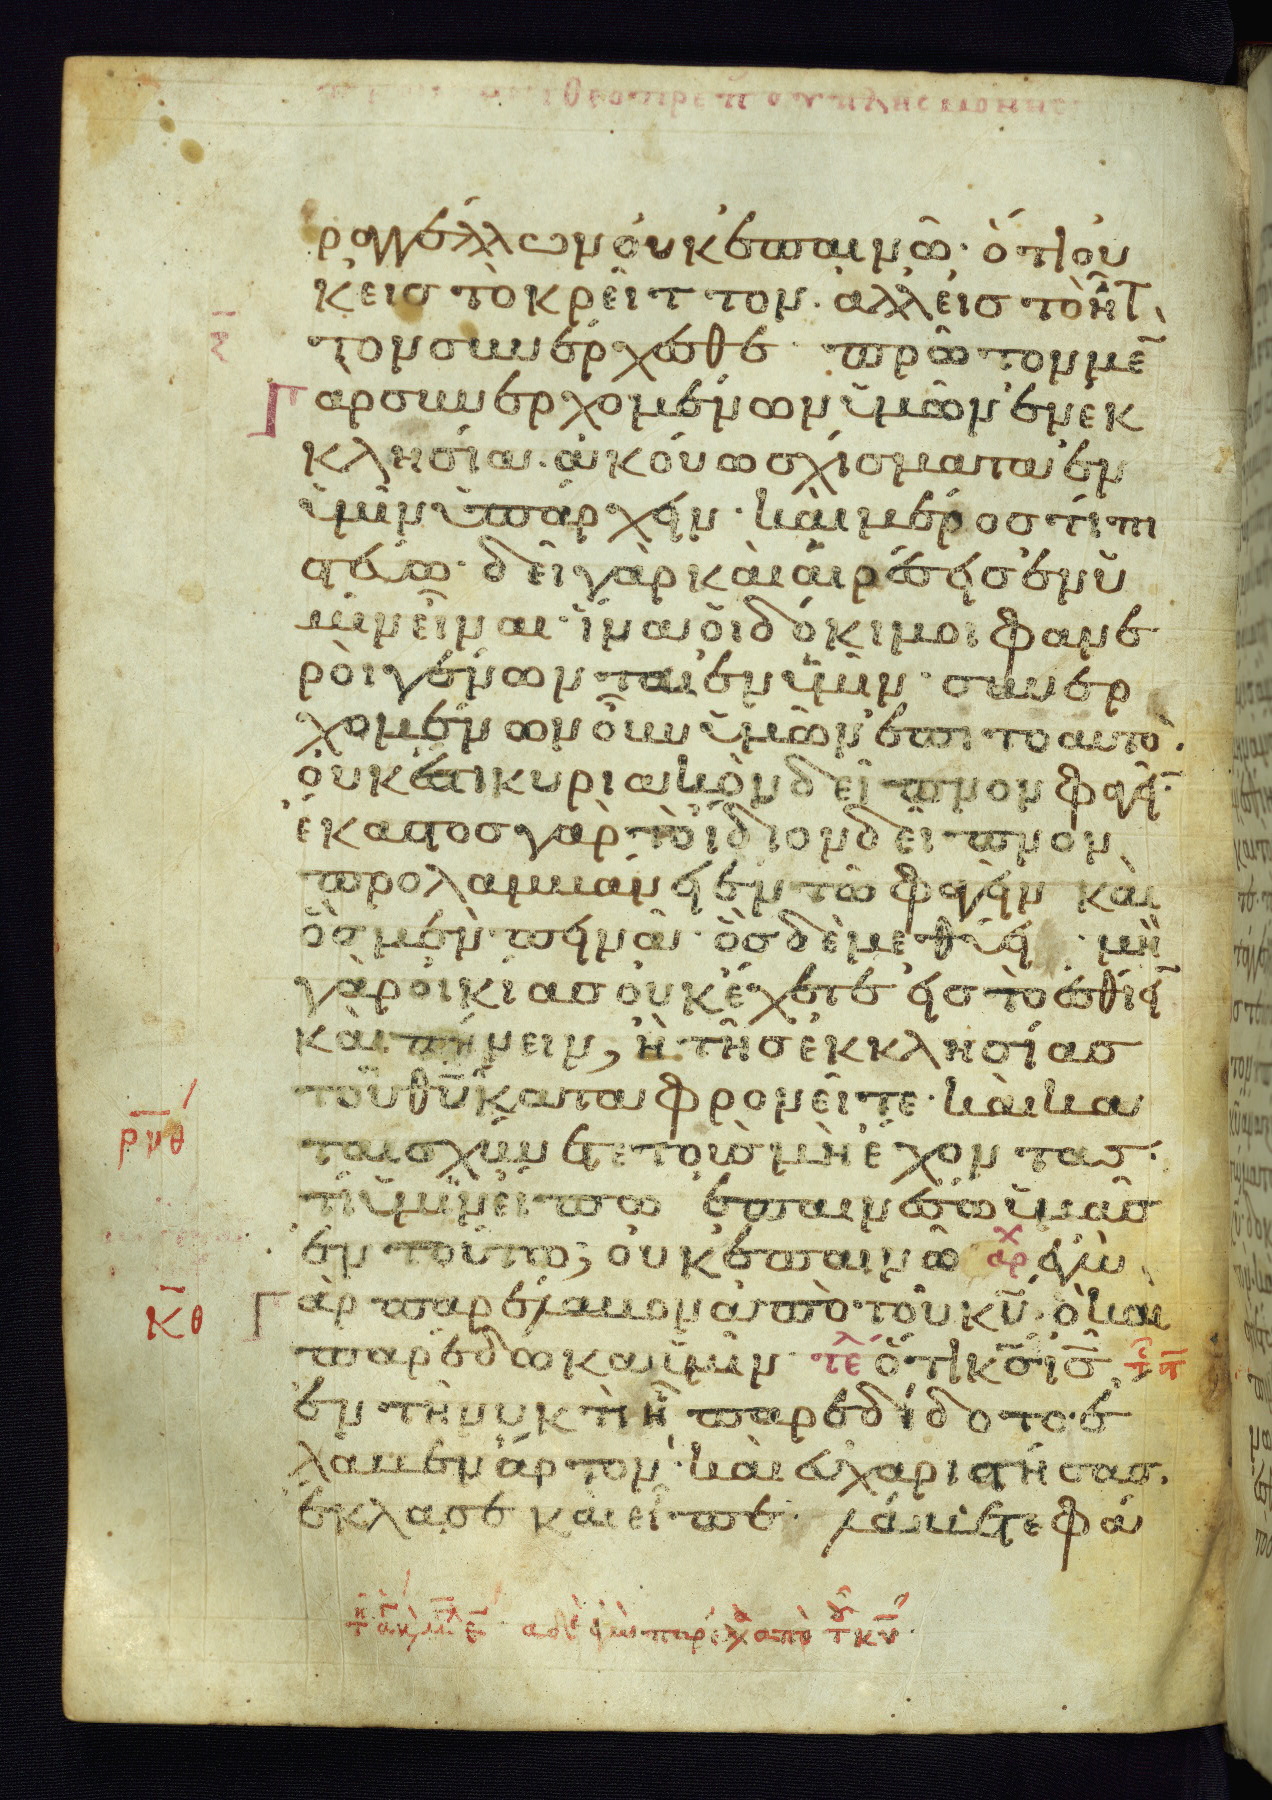 θεοπρεπ
ραγγέλλων οὐκ ἐπαινῶ· ὅτι οὐ
κ εἰς τὸ κρεῖττον· ἀλλ εἰς τὸ ἧτ
τον συνέρχεσθε πρῶτον μὲ
Γαρ συνερχομένων ὑμῶν ἐν ἐκ
κλησία· ἀκούω σχίσματα ἐν
ὑμῖν ὑπάρχειν· καὶ μέρος τί πι
στεύω· δεῖ γὰρ καὶ αἱρέσεις ἐν ὑ
μῖν εἶναι· ἵνα οἱ δόκιμοι φανε
ροὶ γένωνται ἐν ὑμῖν· συνερ
χομένων οὖν ὑμῶν ἐπι το αυτὸ·
οὐκ ἔστι κυριακὸν δεῖπνον φαγεῖ·
ἕκαστος γὰρ τὸ ἴδιον δεῖπνον
προλαμβάνει ἐν τῶ φαγεῖν καὶ
ὃς μὲν πεινᾶ· ὃς δὲ μεθύει· μὴ
γὰρ οἰκίας οὐκ ἔχετε εἰς τὸ ἐσθίει
καὶ πίνειν, ἢ τῆς ἐκκλησίας
τοῦ θῦ καταφρονεῖτε· καὶ κα
ταισχύνετε τοὺς μὴ ἔχοντας·
τί ὑμῖν εἴπω ἐπαινέσω ὑμᾶς
ἐν τούτω; οὐκ ἐπαινῶ αρχ εγὼ
Γὰρ παρέλαβον ἀπὸ τοῦ κῦ· ὃ καὶ
παρέδωκα ὑμῖν τε ὅτι κς ις
ἐν τῆ νυκτὶ ἧ παρεδίδοτο· ἔ
λαβεν ἄρτον· καὶ εὐχαριστήσας·
ἔκλασε καὶ εἶπε· λάβετε φά
ρνθ
κθ
αδε εγὼ παρέλ ἀπὸ τ κυ